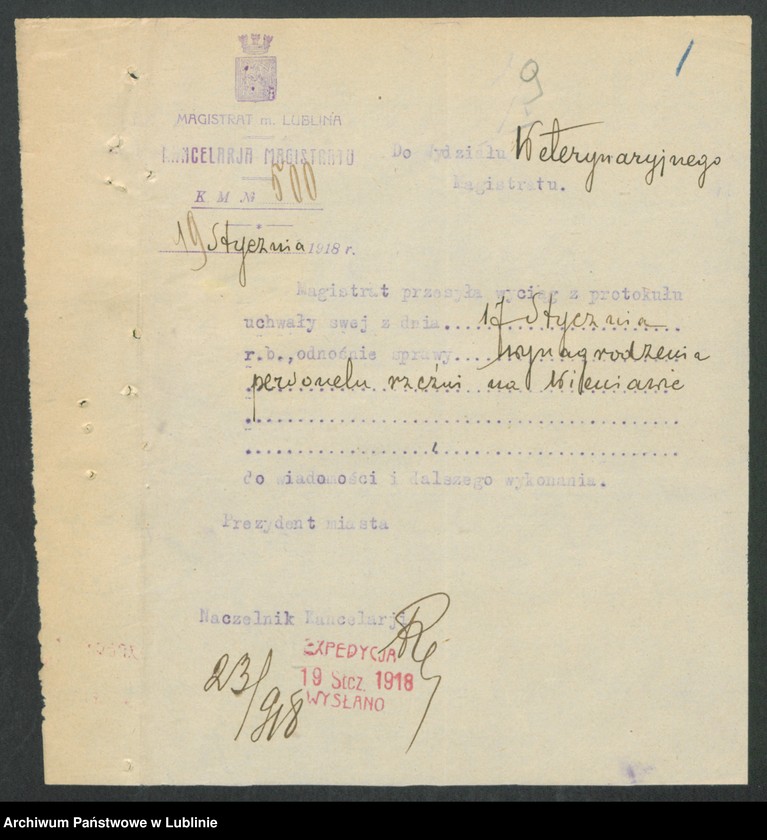 1
MAGISTRAT m. LUBLINA
KANCELARJA MAGISTRATU
K. M. № 500
19 Stycznia 1918 r.
Do Wydziału Weterynaryjnego
Magistratu.
Magistrat przesyła wyciąg z protokułu
uchwały swej z dnia....17 Stycznia
r.b.,odnośnie sprawy....wynagrodzenia
personelu rzeźni na Wieniawie
do wiadomości i dalszego wykonania.
Prezydent miasta
Naczelnik Kancelarji
EXPEDYCJA
19 Stcz. 1918
WYSŁANO
23/918
Archiwum Państwowe w Lublinie